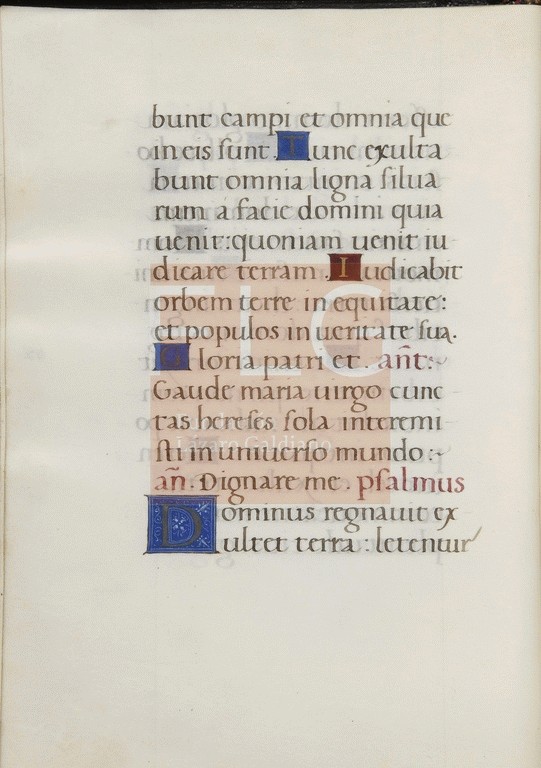 bunt campi et omnia que
in eis sunt. Tunc exulta
bunt omnia ligna silua
rum a facie domini quia
uenit: quoniam uenit iu
dicare terram. Iudicabit
orbem terre in equitate:
et populos in ueritate sua.
Gloria patri et. añt:
Gaude maria uirgo cunc
tas hereses sola interemi
sti in uniuerso mundo:~
añ. Dignare me. psalmus
Dominus regnauit ex
ultet terra: letentur
FLG
Lázaro Galdiano